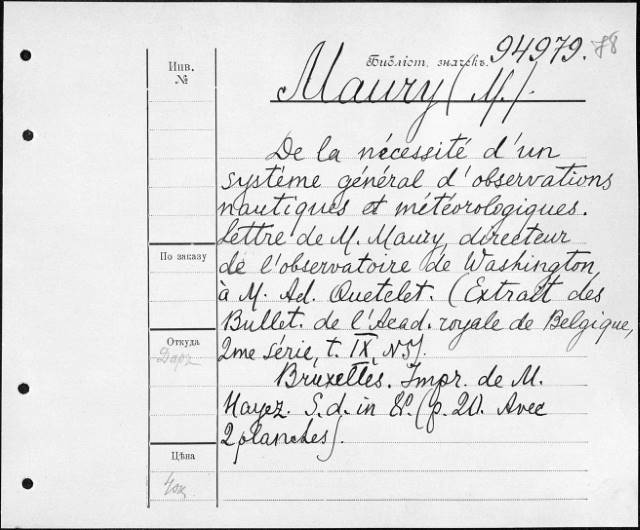 Библіот. значекъ. 94979. 78
Инв.
№
Maury (M.).
De la nécessité d'un
système général d'observations
nautiques et météorologiques.
Lettre de M. Maury, directeur
По заказу
de l'observatoire de Washington,
à M. Ad. Quetelet. (Extrait des
Bullet. de l'Acad. royale de Belgique,
Откуда
Даръ
2me série, t. IX, N5).
Bruxelles. Impr. de M.
Hayez. S. d. in 8º. (p. 20. Avec
2 planches).
Цѣна